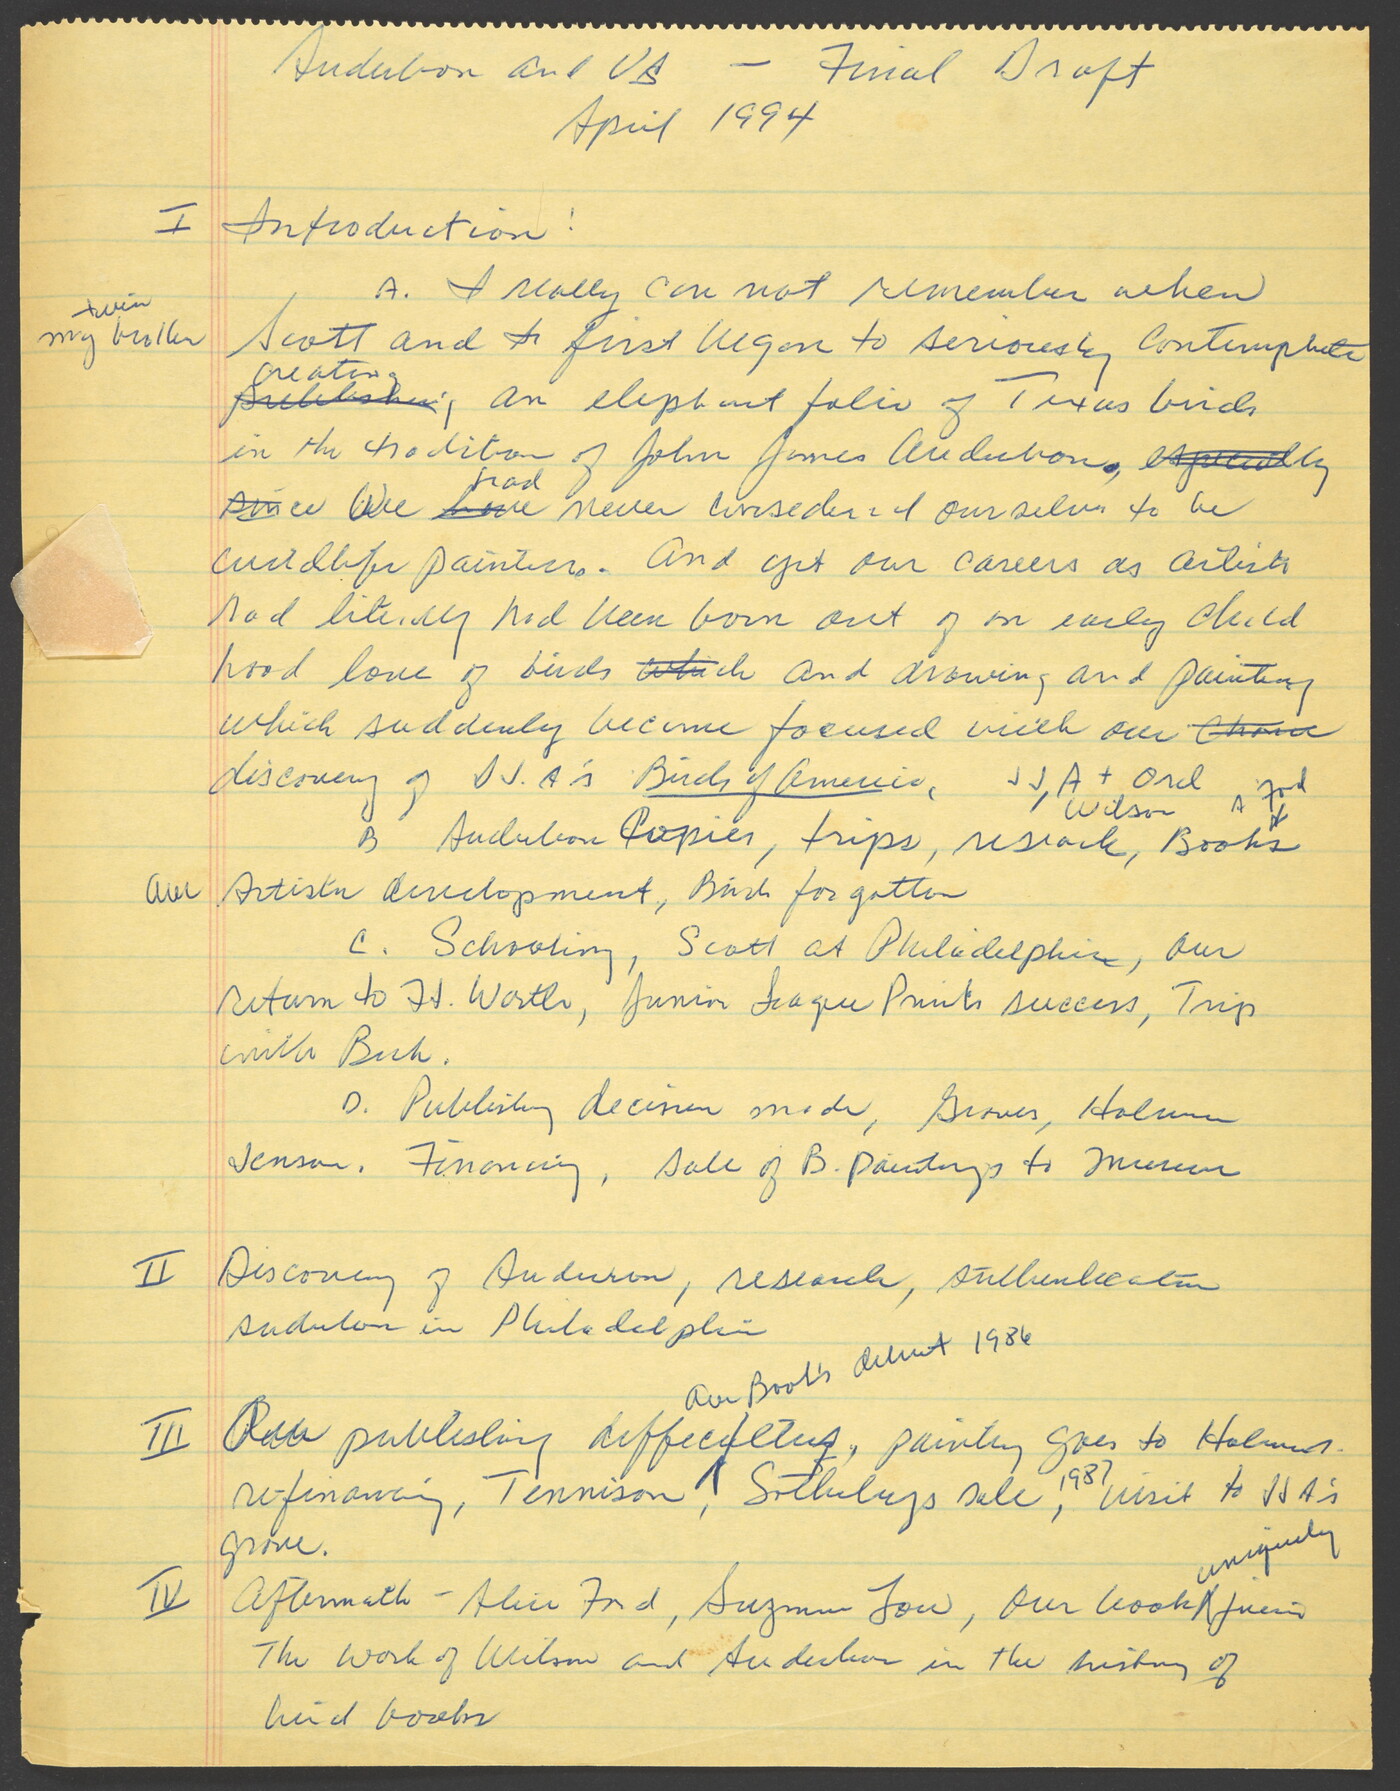 Audubon and US – Final Draft
April 1994
I Introduction:
A. I really can not remember when
twin
my brother Scott and I first began to seriously contemplate
creating
publishing an elephant folio of Texas birds
in the tradition of John James Audubon, especially
had
since We have never considered ourselves to be
wildlife painters. And yet our careers as artists
had literally had been born out of an early child
hood love of birds which and drawing and painting
which suddenly became focused with our
discovery of JJ. A's Birds of America, JJ, A + Ord
Wilson
B Audubon Copies, trips, research, Books
our Artistic development, Birds forgotten
C. Schooling, Scott at Philadelphia, our
return to Ft. Worth, Junior League Prints success, Trip
with Beck.
D. Publishing decision made, Graves, Holman
Jenson. Financing, sale of B. paintings to Museum
II Discovery of Anderson, research, authentication
Audubon in Philadelphia
Our Book's debut 1986
III Our publishing difficulties, painting goes to Holmes.
refinancing, Tennison, Sothebys sale, 1987 visit to JJ A's
grave.
uniquely
IV Aftermath – Alice Ford, Suzanne Low, Our book joins
The work of Wilson and Audubon in the history of
bird books